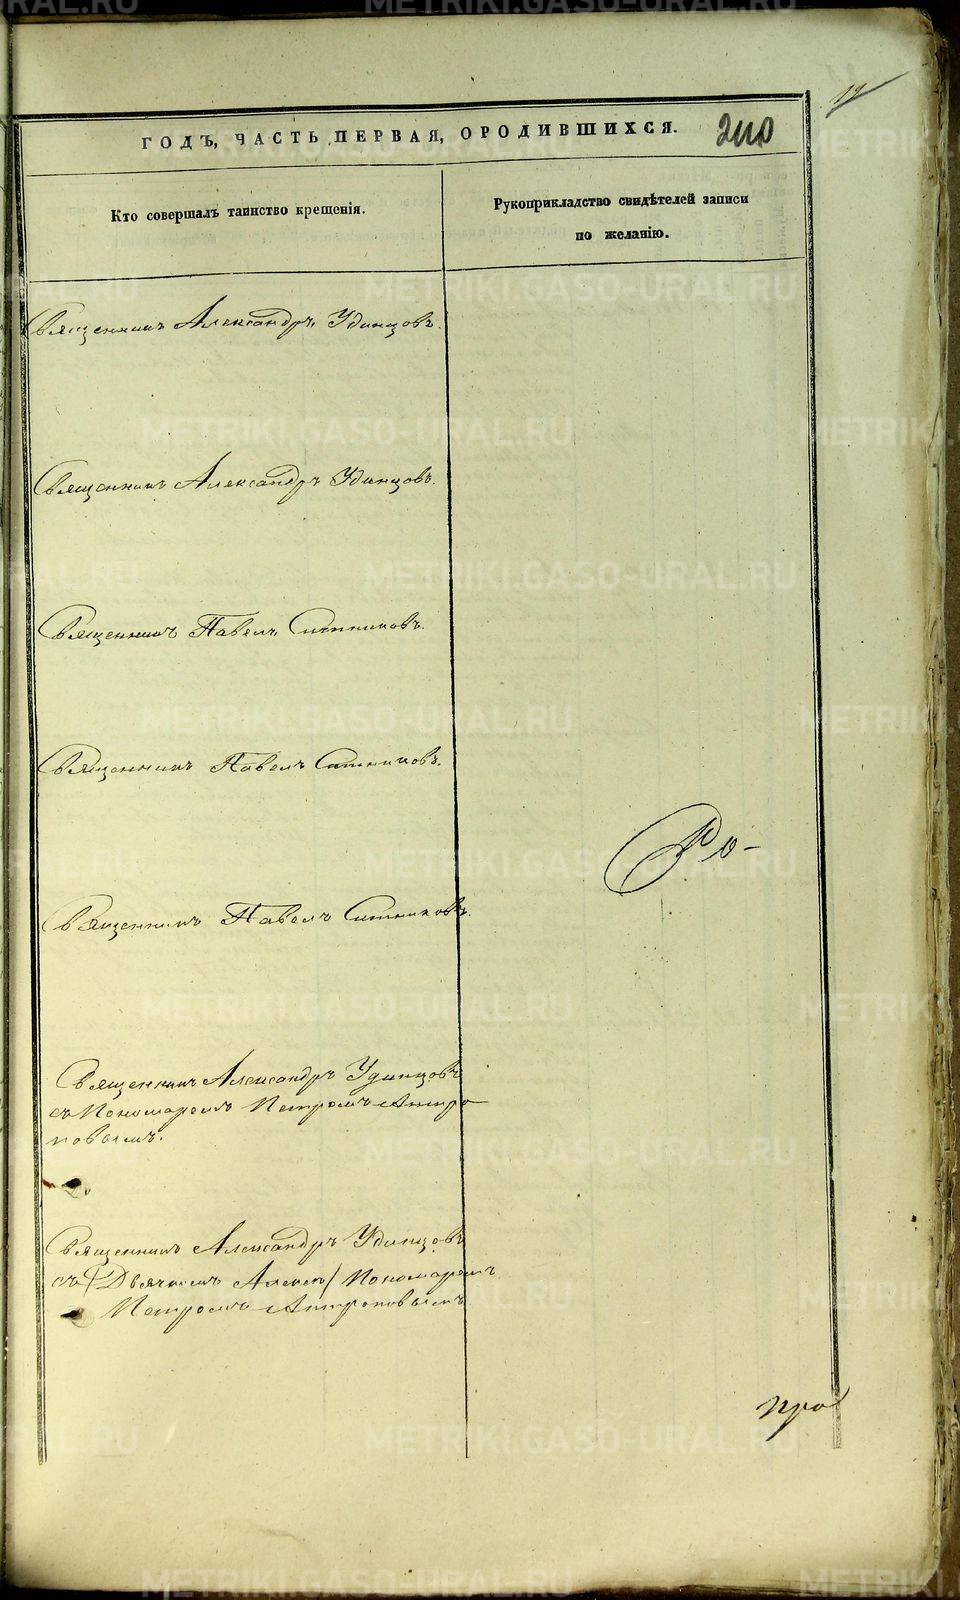 12
ГОДЪ, ЧАСТЬ ПЕРВАЯ, О РОДИВШИХСЯ. 240
Кто совершалъ таинство крещенія.
Рукоприкладство свидѣтелей записи
по желанію.
Священникъ Александръ Удинцовъ.
Священникъ Александръ Удинцовъ.
Священникъ Павелъ Ситниковъ.
Священникъ Павелъ Ситниковъ.
Священникъ Павелъ Ситниковъ.
Священникъ Александръ Удинцовъ
съ Пономаремъ Петромъ Антро
повымъ.
Священникъ Александръ Удинцовъ
съ /Дьячкомъ Алекс/ Пономаремъ
Петромъ Антроповымъ
про
METRIKI.GASO-URAL.RU